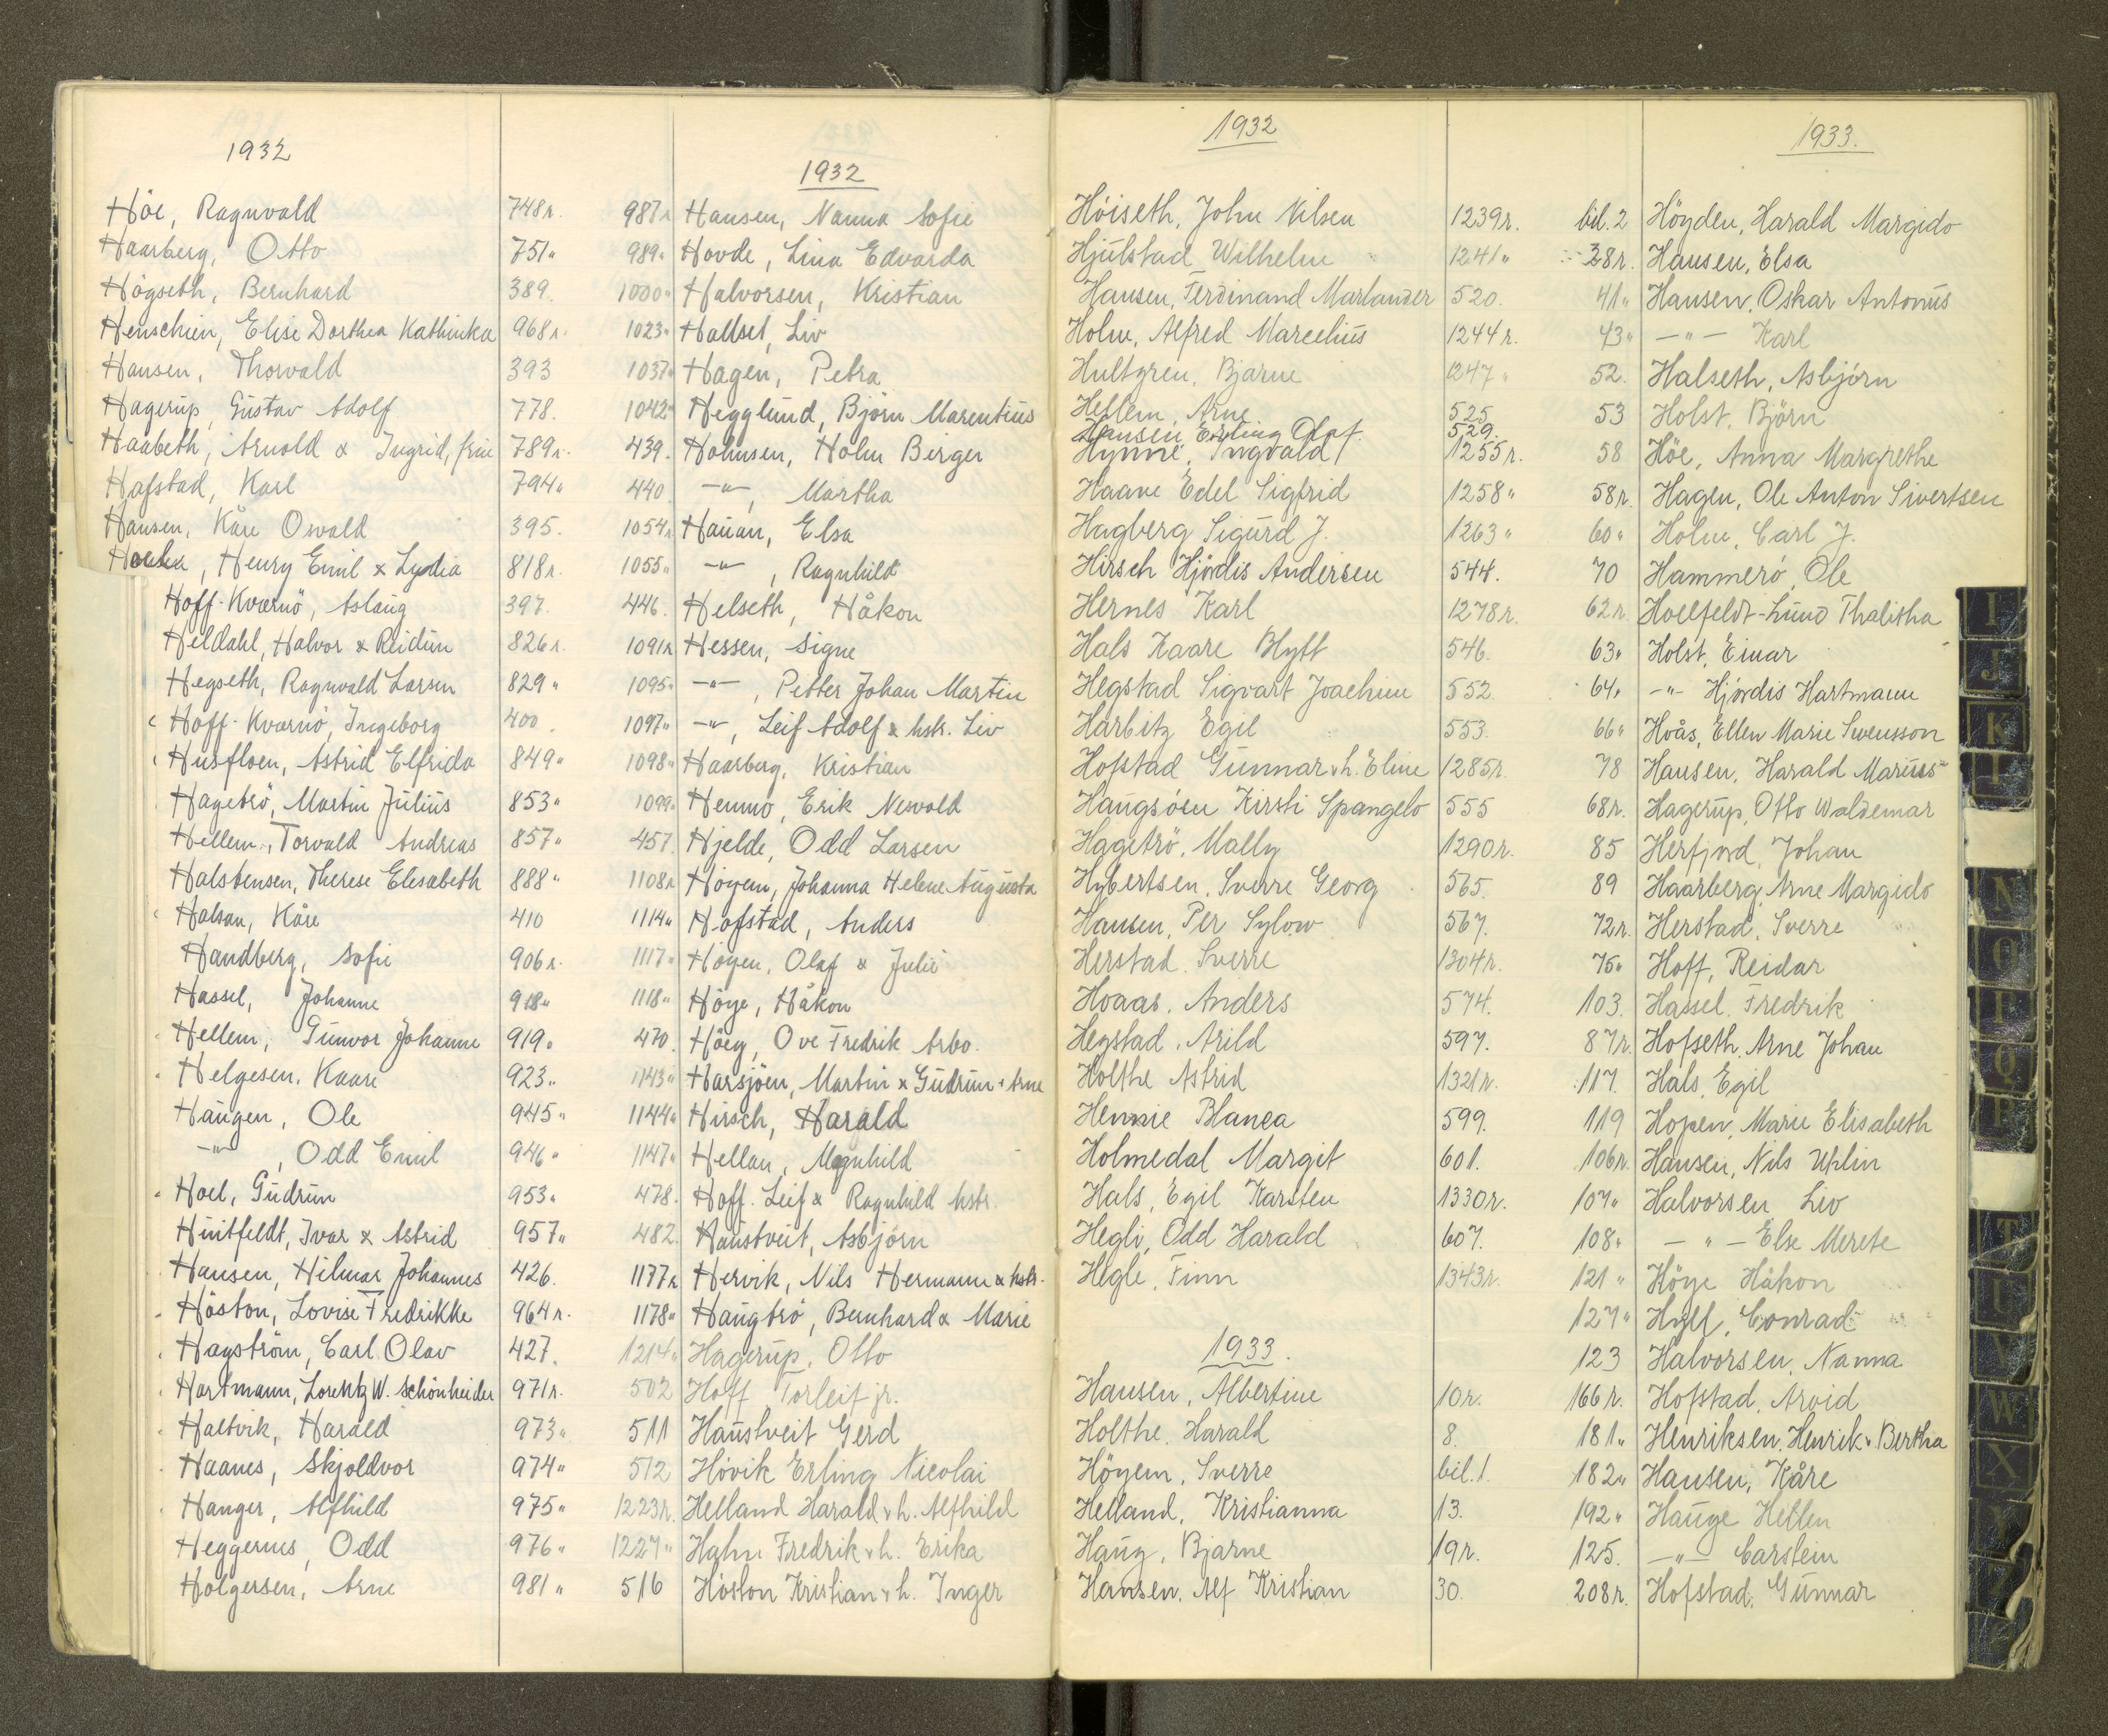 1932
Höe, Ragnvald 748r.
Haarberg, Otto 751"
Högseth, Bernhard 389.
Henschien, Elise Dorthea Kathinka 968r.
Hansen, Thorvald 393
Hagerup, Gustav Adolf 778.
Haabeth, Arnold & Ingrid, frue 789r.
Hafstad, Karl 794"
Hansen, Kåre Osvald 395.
, Henry Emil & Lydia 818r.
Hoff-Kværnö, Aslaug 397.
Heldahl, Halvor & Reidun 826r.
Hegseth, Ragnvald Larsen 829"
Hoff-Kværnö, Ingeborg 400.
Husfloen, Astrid Elfrida 849"
Hagetrö, Martin Julius 853"
Hellem, Torvald Andreas 857"
Halstensen, Therese Elesabeth 888"
Halsan, Kåre 410
Handberg, Sofie 906r.
Hassel, Johanne 918"
Hellem, Gunvor Johanne 919"
Helgesen, Kaare 923"
Haugen, Ole 945"
-"- , Odd Emil 946"
Hoel, Gudrun 953"
Huitfeldt, Ivar & Astrid 957"
Hansen, Hilmar Johannes 426.
Höston, Lovise Fredrikke 964r.
Hagström, Carl Olav 427.
Hartmann, Lorentz W. Schönheider 971r.
Haltvik, Harald 973"
Haanes, Skjoldvor 974"
Hanger, Alfhild 975"
Heggernes, Odd 976"
Holgersen, Arne 981"
1932
987r Hansen, Nanna Sofie
989" Hovde, Lina Edvarda
1000" Halvorsen, Kristian
1023" Hallset, Liv
1037" Hagen, Petra
1042" Hegglund, Björn Marentius
439. Holmsen, Holm Birger
440. -"- , Martha
1054r Hauan, Elsa
1055" -"- , Ragnhild
446. Helseth, Håkon
1091r Hessen, Signe
1095" -"- , Petter Johan Martin
1097" -"- , Leif Adolf & hstr. Liv
1098" Haarberg, Kristian
1099" Hemmo, Erik Nesvold
457. Hjelde, Odd Larsen
1108r Höyem, Johanna Helene Augusta
1114" Hofstad, Anders
1117" Höyen, Olaf & Julie
1118" Höye, Håkon
470. Höeg, Ove Fredrik Arbo.
1143" Harsjöen, Martin & Gudrun & Arne
1144" Hirsch, Harald
1147" Hellan, Magnhild
478. Hoff. Leif & Ragnhild hstr.
482. Haustveit, Asbjörn
1177r Hervik, Nils Hermann & hstr.
1178" Haugtrö, Bernhard & Marie
1214" Hagerup, Otto
502 Hoff Torleif jr.
511 Haustveit Gerd
512 Hövik Erling Nicolai
1223r. Helland Harald & h. Alfhild
1227" Hahn Fredrik & h. Erika
516 Höston Kristian & h. Inger
1932
Höiseth, John Nilsen 1239r.
Hjulstad Wilhelm 1241"
Hansen, Ferdinand Marlander 520.
Holm, Alfred Marcelius 1244r.
Hultgren, Bjarne 1247"
Hellem, Arne 525.
Hansen, Erling Olaf. 529.
Hynne, Ingvald 1255r.
Haave Edel Sigfrid 1258"
Hagberg Sigurd J. 1263"
Hirsch Hjördis Andersen 544.
Hernes Karl 1278r.
Hals Kaare Blytt 546.
Hegstad Sigvart Joachim 552.
Harbitz Egil 553.
Hofstad Gunnar & h. Eline 1285r.
Haugsöen Kirsti Spangelo 555
Hagetrö, Mally 1290r.
Hybertsen, Sverre Georg 565.
Hansen, Per Sylow 567.
Herstad, Sverre 1304r.
Hoaas, Anders 574.
Hegstad, Arild 597.
Holthe Astrid 1321r.
Hennie Blanca 599.
Holmedal Margit 601.
Hals, Egil Karsten 1330r.
Hegli, Odd Harald 607.
Hegle, Finn 1343r.
1933.
Hansen, Albertine 10r.
Holthe, Harald 8.
Höyem, Sverre bil. 1.
Helland, Kristianna 13.
Haug, Bjarne 19r.
Hansen, Alf Kristian 30.
1933.
bil. 2 Höyden, Harald Margido
38r. Hansen, Elsa
41" Hansen, Oskar Antonius
43" -"- Karl
52. Halseth, Asbjörn
53 Holst, Björn
58 Höe, Anna Margrethe
58r. Hagen, Ole Anton Sivertsen
60" Holm, Carl J.
70 Hammerö, Ole
62r. Hoelfeldt-Lund Thalitha
63" Holst, Einar
64" -"- Hjördis Hartmann
66" Hoås, Ellen Marie Svensson
78 Hansen, Harald Marius
68r. Hagerup, Otto Waldemar
85 Herfjord, Johan
89 Haarberg, Arne Margido
72r. Herstad, Sverre
75" Hoff, Reidar
103. Hassel, Fredrik
87r. Hofseth, Arne Johan
117. Hals, Egil
119 Hopen, Marie Elisabeth
106r. Hansen, Nils Uhlin
107" Halvorsen Liv
108" -"- Else Merete
121" Höye Håkon
127" Hylf, Conrad
123 Halvorsen, Nanna
166r. Hofstad, Arvid
181" Henriksen, Henrik & Bertha
182" Hansen, Kåre
192" Hauge Hellen
125. -"- Carstein
208r. Hofstad, Gunnar
I
J
K
L
N
O
P
Q
R
T
U
V
W
X
Y
Z